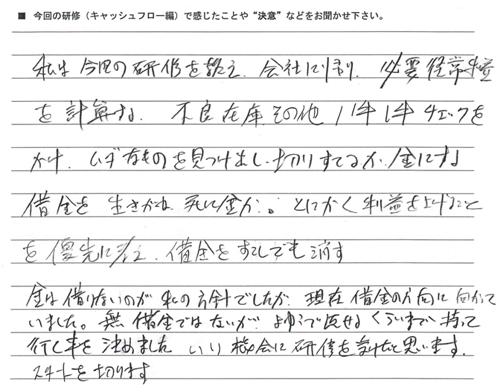 ■ 今回の研修（キャッシュフロー編）で感じたことや“決意”などをお聞かせ下さい。
私は今回の研修を終え、会社に帰り、必要経常利益
を計算する。不良在庫その他 1件1件チェックを
かけ、ムダなものを見つけ出し、切りすてるか、金にする
借金を 生きがね 死に金か。とにかく利益を上げること
を優先に考え、借金をすこしでも消す
金は借りないのが私の方針でしたが 現在借金の方向に向かって
いました。無借金ではないが で返せるくらいまで持って
行く事を決めました いい機会に研修を受けたと思います。
スタートを切ります